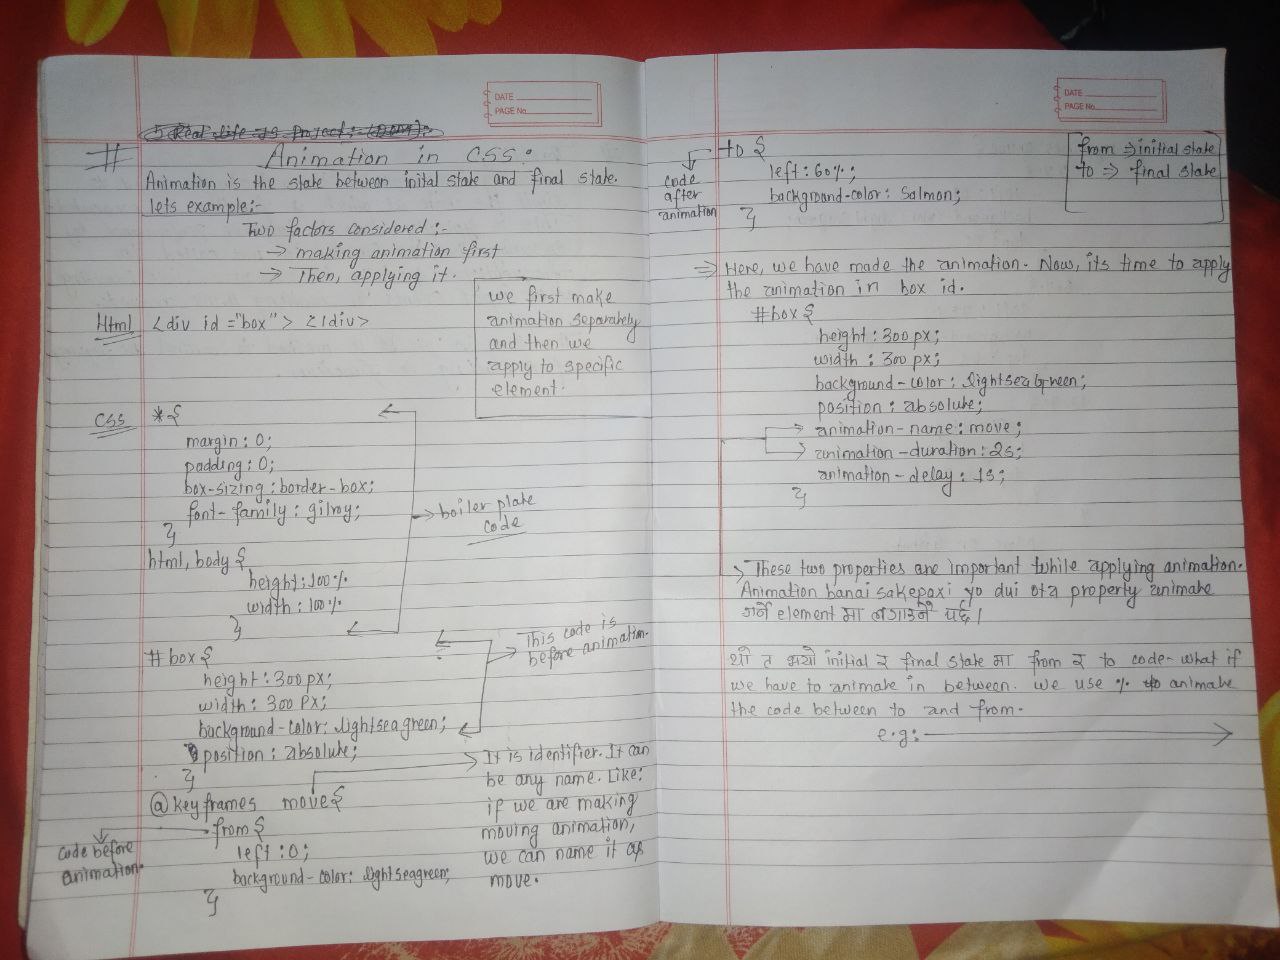 DATE
PAGE No.
# Animation in CSS:
Animation is the state between inital state and final state.
lets example:-
Two factors considered :-
→ making animation first
→ Then, applying it.
we first make
animation separately
and then we
apply to specific
element.
Html <div id ="box"> </div>
CSS *{
margin: 0;
padding: 0;
box-sizing: border-box;
font-family: gilroy;
}
→ boiler plate
code
html, body {
height: 100%
width: 100%
}
→ This code is
before animation.
#box {
height: 300px;
width: 300 Px;
background-color: lightseagreen;
position: absolute;
}
@keyframes move{
from {
left: 0;
background-color: lightseagreen;
}
code before
animation.
It is identifier. It can
be any name. Like:
if we are making
moving animation,
we can name it as
move.
DATE
PAGE No.
to {
left: 60%;
background-color: Salmon;
}
code
after
animation
from ⇒ initial state
to ⇒ final state
⇒ Here, we have made the animation. Now, its time to apply
the animation in box id.
#box {
height: 300 px;
width: 300 px;
background-color: lightseaGreen;
position: absolute;
→ animation-name: move;
→ animation-duration: 2s;
animation-delay: 1s;
}
→ These two properties are important while applying animation.
Animation banai sakepaxi yo dui ota property animate
गर्ने element मा लगाउनै पर्छ।
यो त भयो initial र final state मा from र to code- what if
we have to animate in between. we use % to animate
the code between to and from.
e.g: